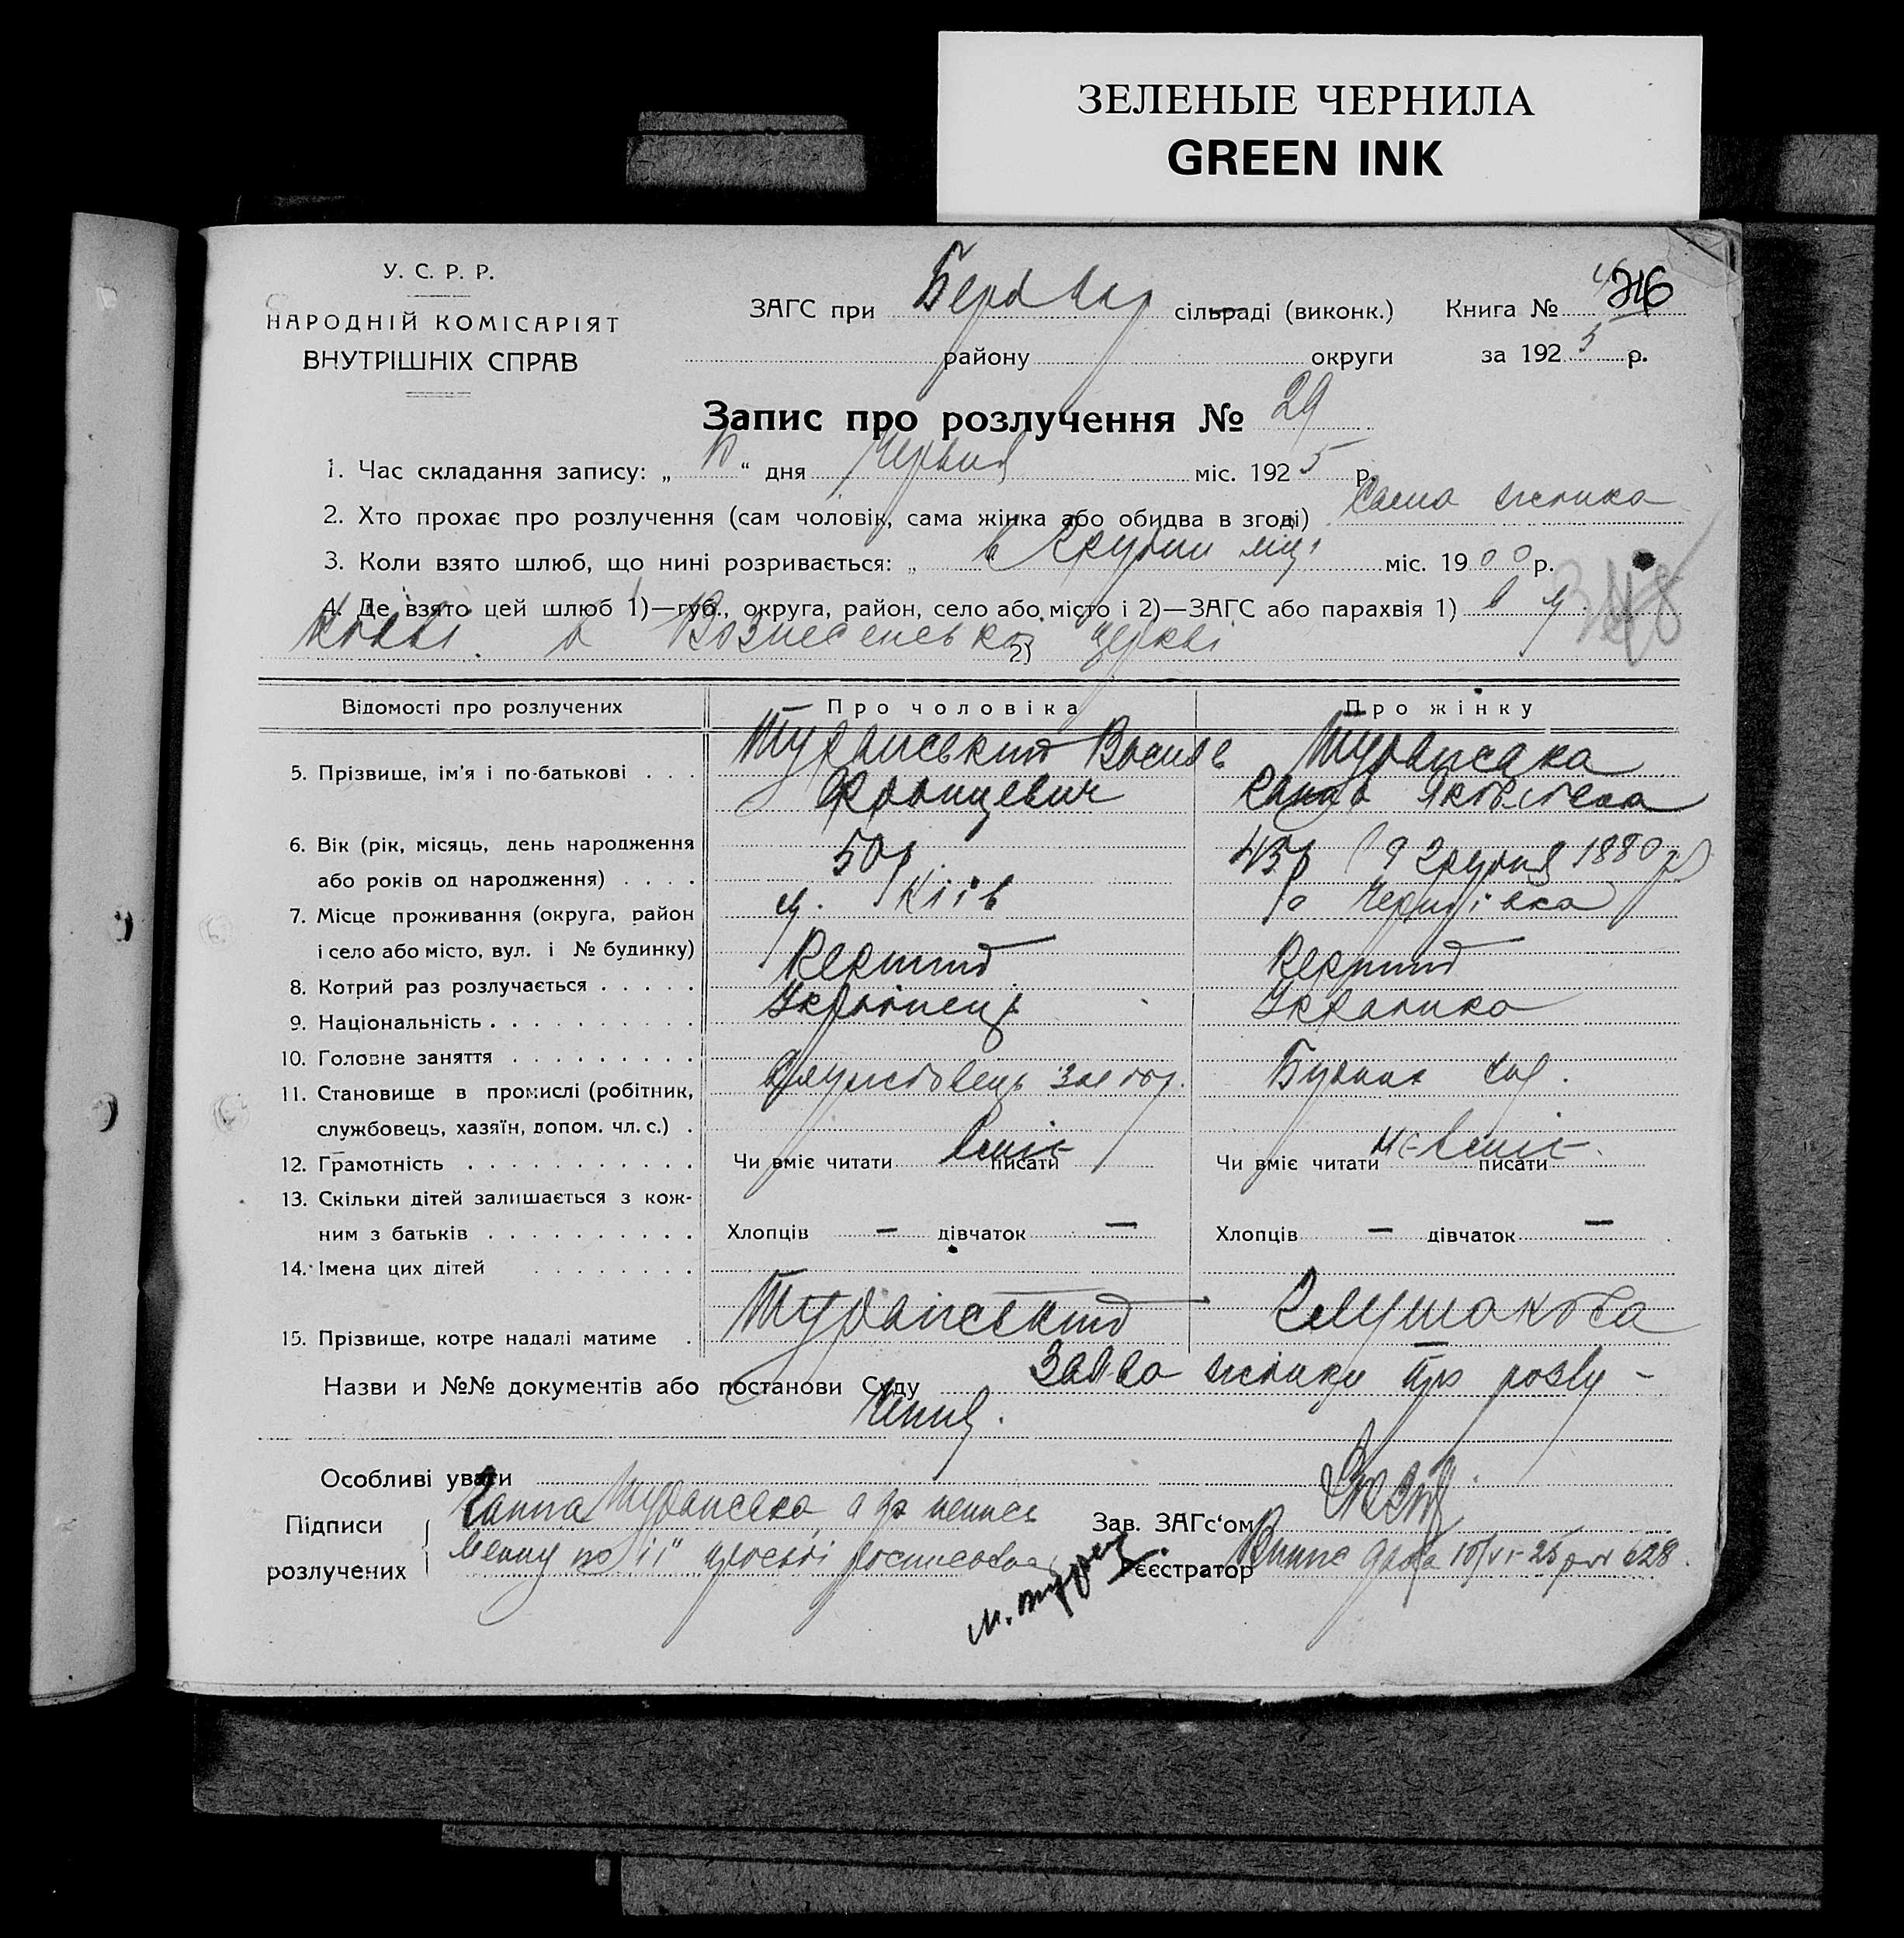 ЗЕЛЕНЫЕ ЧЕРНИЛА
GREEN INK
У. С. Р. Р.
НАРОДНІЙ КОМІСАРІЯТ
ВНУТРІШНІХ СПРАВ
ЗАГС при сільраді (виконк.) Книга №
району округи за 1925 р.
Запис про розлучення № 29
1. Час складання запису: „ “ дня Червня міс. 1925 р.
2. Хто прохає про розлучення (сам чоловік, сама жінка або обидва в згоді) Сама жінка
3. Коли взято шлюб, що нині розривається: „ в Грудни міс. 1900 р.
4. Де взято цей шлюб 1)—губ., округа, район, село або місто і 2)—ЗАГС або парахвія 1) в м.
Київі. в Вознесенській 2) церкві
348
Відомості про розлучених Про чоловіка Про жінку
5. Прізвище, ім'я і по-батькові . . . Туранський Василь Туранська
Францевич Яковлевна
6. Вік (рік, місяць, день народження 50 р. 45 р (9 Грудня 1880 р)
або років од народження) . . . .
7. Місце проживання (округа, район м. Київ
і село або місто, вул. і № будинку)
8. Котрий раз розлучається . . . . . Перший Перший
9. Національність . . . . . . . . . . Українець Українка
10. Головне заняття . . . . . . . . .
11. Становище в промислі (робітник, службовець
службовець, хазяїн, допом. чл. с.) .
12. Грамотність . . . . . . . . . . . Чи вміє читати вміє писати Чи вміє читати не вміє писати
13. Скільки дітей залишається з кож-
ним з батьків . . . . . . . . . . Хлопців — дівчаток — Хлопців — дівчаток —
14. Імена цих дітей . . . . . . . .
15. Прізвище, котре надалі матиме . Туранський Глушакова
Назви и №№ документів або постанови Суду Заява жінки про розлу-
чення.
Особливі уваги
Підписи Ганна Туранська а за непись
розлучених менну по її просьбі росписався
Зав. ЗАГс‘ом
Реєстратор 10/VI-25 р. 628.